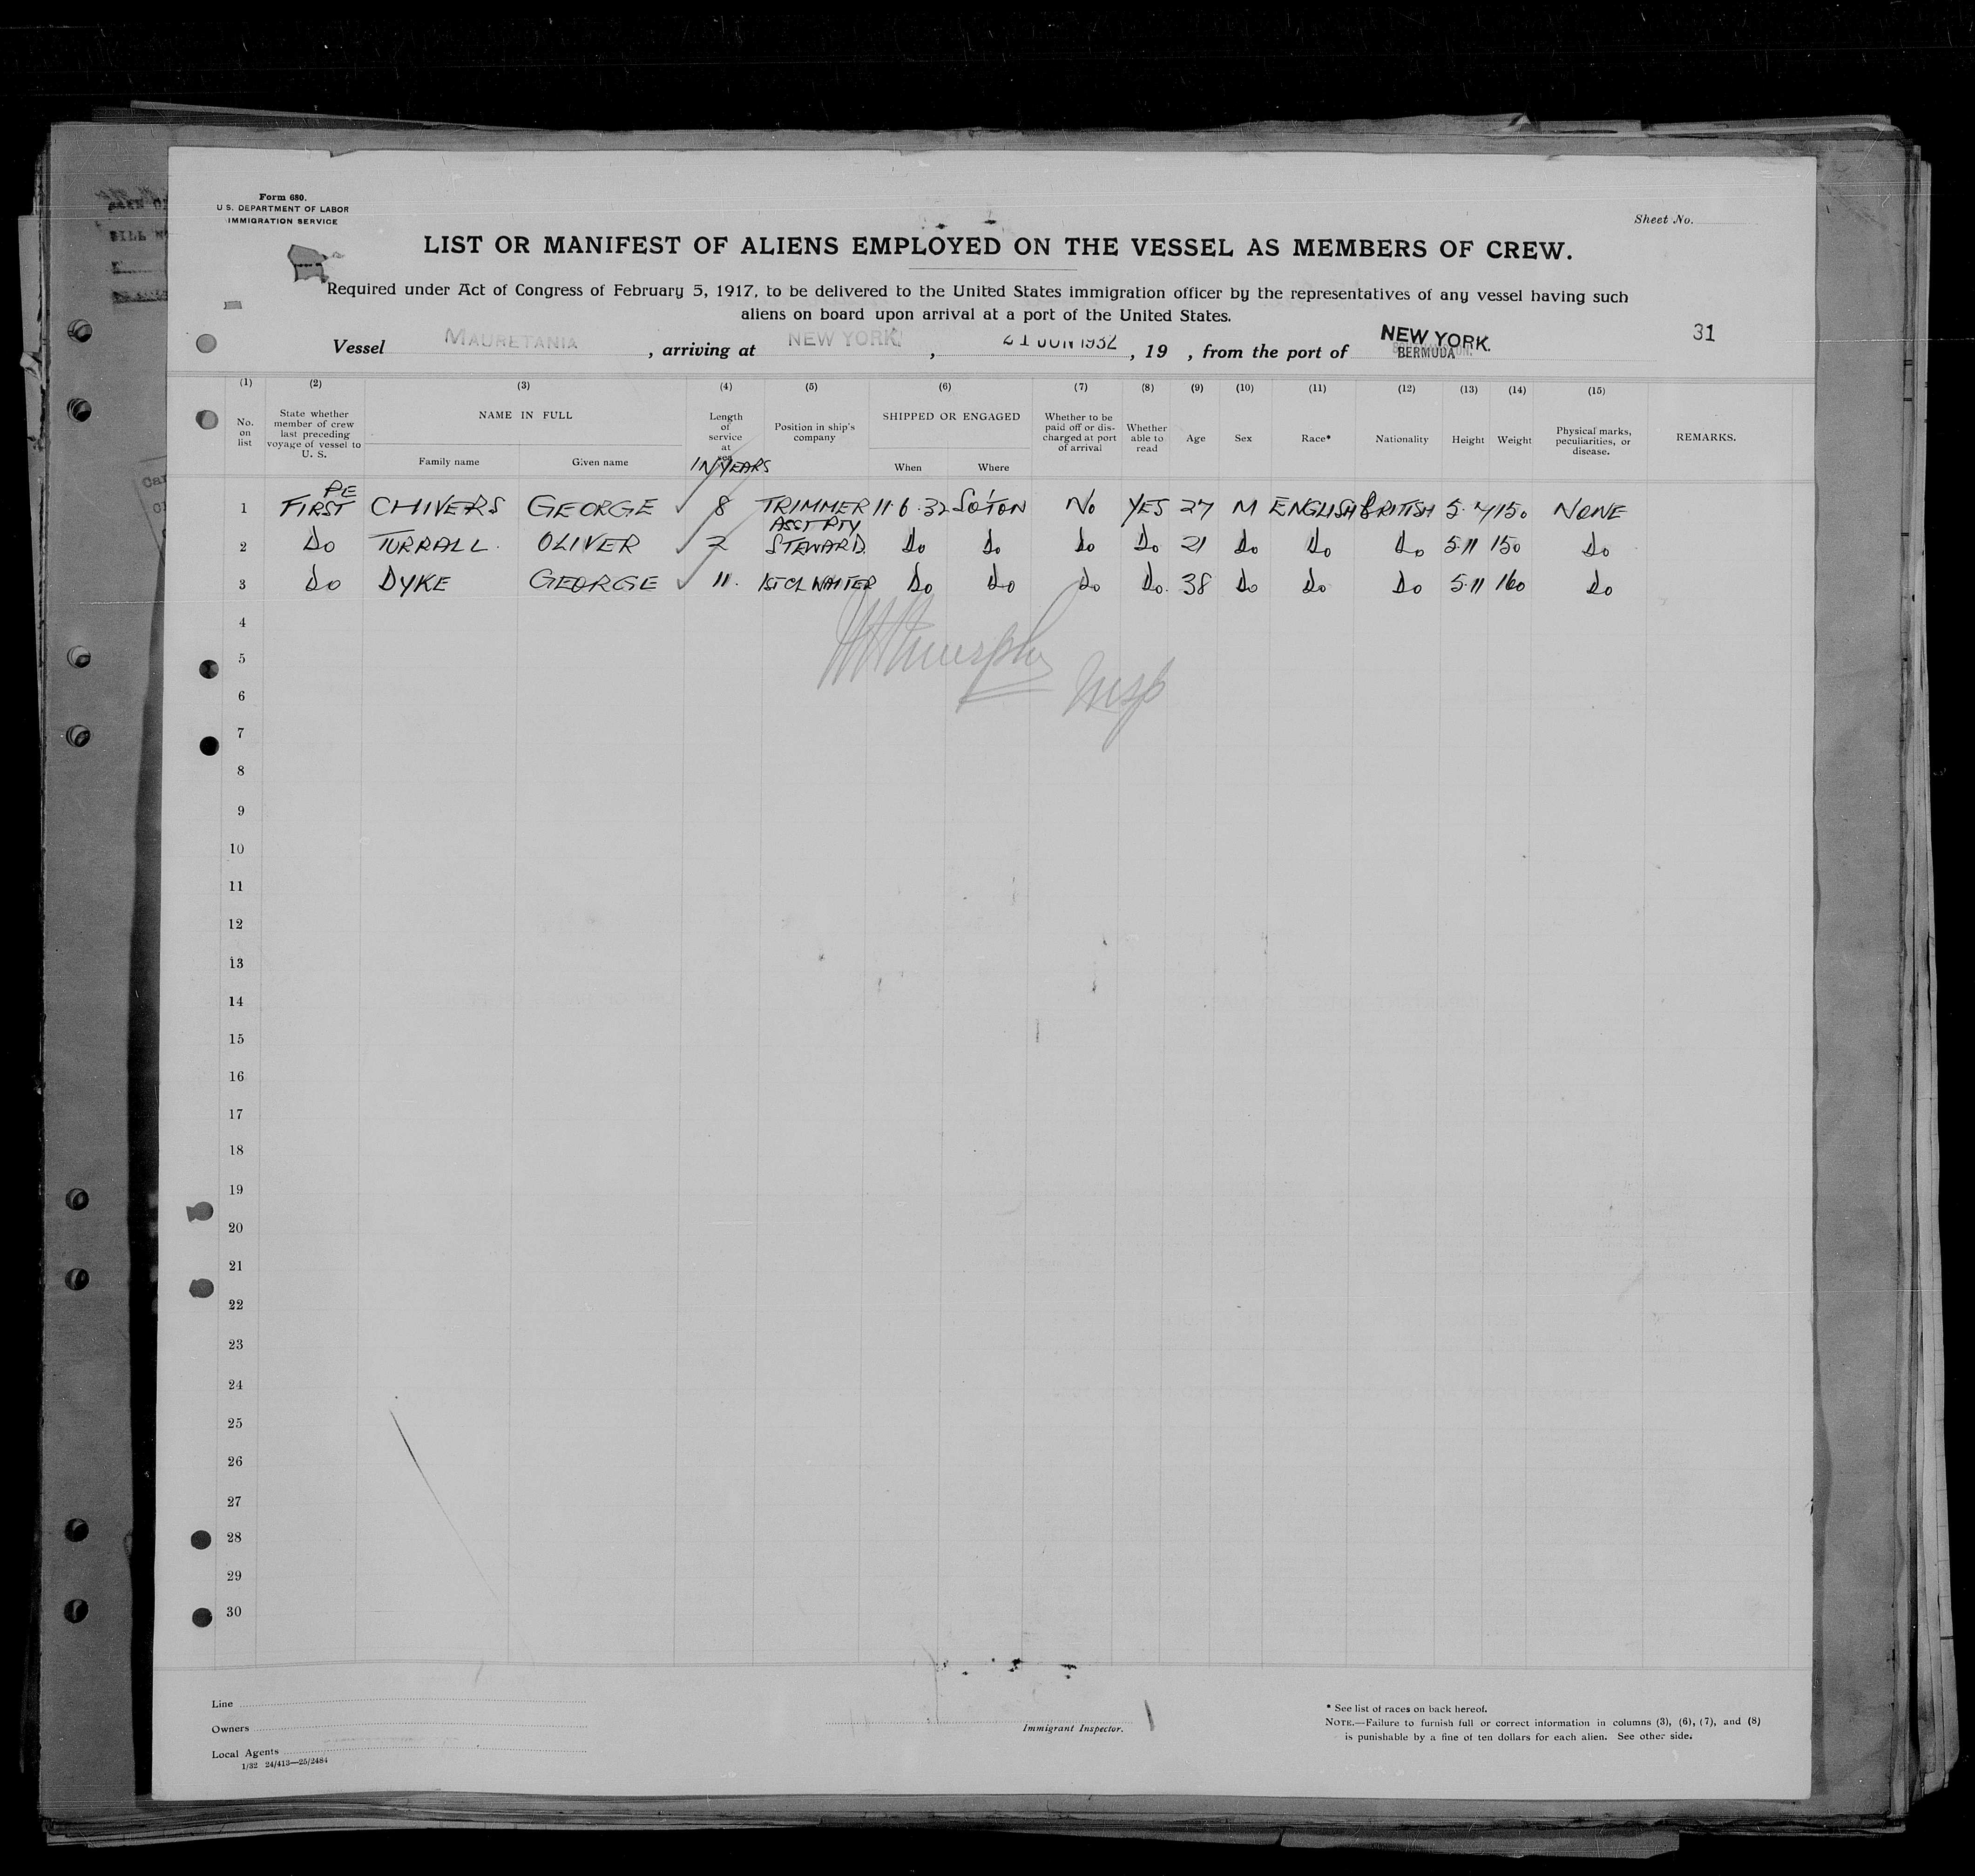 Form 680.
U. S. DEPARTMENT OF LABOR
IMMIGRATION SERVICE
Sheet No.
LIST OR MANIFEST OF ALIENS EMPLOYED ON THE VESSEL AS MEMBERS OF CREW.
Required under Act of Congress of February 5, 1917, to be delivered to the United States immigration officer by the representatives of any vessel having such
aliens on board upon arrival at a port of the United States.
Vessel MAURETANIA , arriving at NEW YORK. , 21 JUN 1932 , 19 , from the port of NEW YORK.
BERMUDA
31
(1) (2) (3) (4) (5) (6) (7) (8) (9) (10) (11) (12) (13) (14) (15)
No. on list
State whether member of crew last preceding voyage of vessel to U. S.
NAME IN FULL
Family name Given name
Length of service at sea
IN YEARS
Position in ship's company
SHIPPED OR ENGAGED
When Where
Whether to be paid off or discharged at port of arrival
Whether able to read
Age Sex Race* Nationality Height Weight
Physical marks, peculiarities, or disease.
REMARKS.
PE
1 FIRST CHIVERS GEORGE 8 TRIMMER 11.6.32 So'TON No YES 27 M ENGLISH BRITISH 5.7 150 NONE
ASST PTY
2 Do TURRALL. OLIVER 2 STEWARD. Do Do Do Do 21 Do Do Do 5.11 150 Do
3 Do DYKE GEORGE 11. 1ST CL WAITER Do Do Do Do. 38 Do Do Do 5.11 160 Do
4
5
6
7
8
9
10
11
12
13
14
15
16
17
18
19
20
21
22
23
24
25
26
27
28
29
30
Line
Owners
Local Agents
1/32 24/413—25/2484
Immigrant Inspector.
* See list of races on back hereof.
NOTE.—Failure to furnish full or correct information in columns (3), (6), (7), and (8)
is punishable by a fine of ten dollars for each alien. See other side.